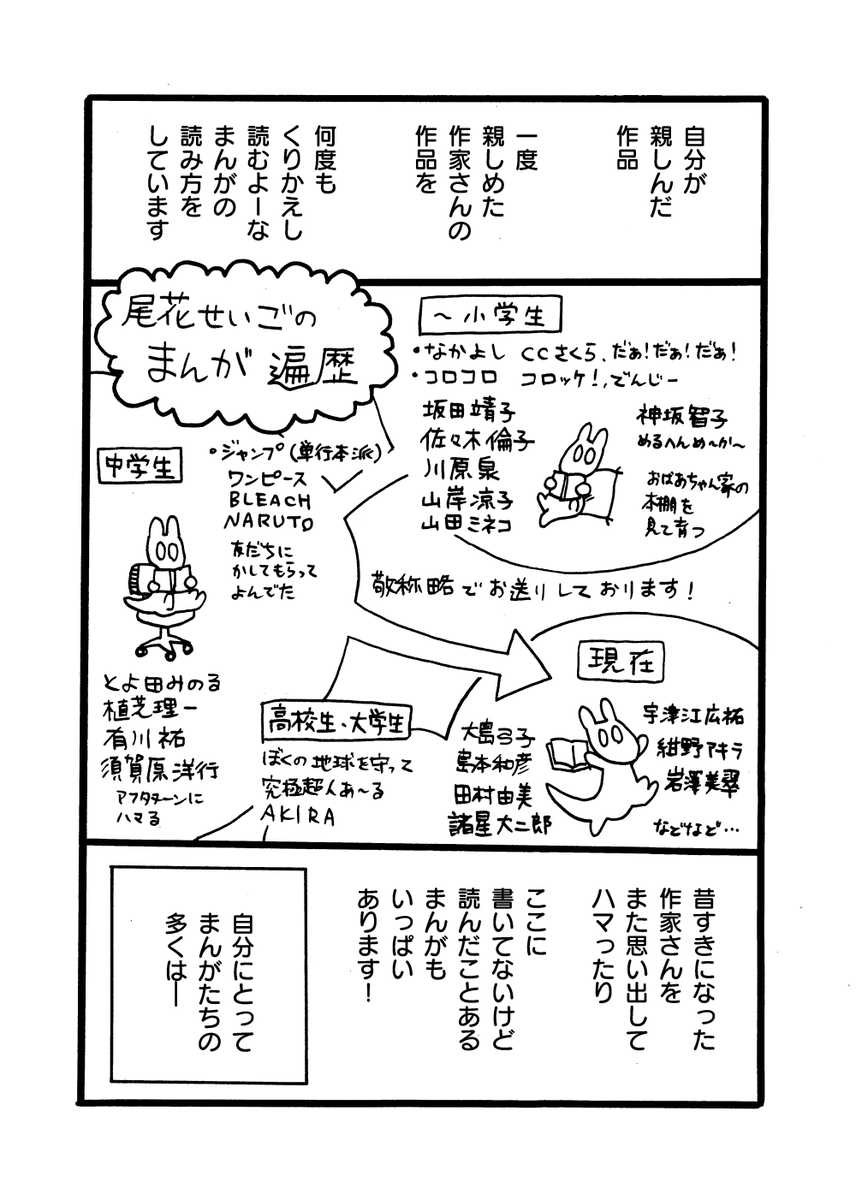 自分が
親しんだ
作品
一度
親しめた
作家さんの
作品を
何度も
くりかえし
読むよーな
まんがの
読み方を
しています
尾花せいごの
まんが遍歴
～小学生
・なかよし CCさくら、だぁ!だぁ!だぁ!
・コロコロ コロッケ!,でんじー
坂田靖子
佐々木倫子
川原泉
山岸凉子
山田ミネコ
神坂智子
めるへんめ～か～
おばあちゃん家の
本棚を
見て育つ
中学生
・ジャンプ(単行本派)
ワンピース
BLEACH
NARUTO
友だちに
かしてもらって
よんでた
とよ田みのる
植芝理一
有川祐
須賀原洋行
アフタヌーンに
ハマる
敬称略でお送りしております!
高校生・大学生
ぼくの地球を守って
究極超人あ～る
AKIRA
現在
大島弓子
島本和彦
田村由美
諸星大二郎
宇津江広祐
紺野アキラ
岩澤美翠
などなど…
昔すきになった
作家さんを
また思い出して
ハマったり
ここに
書いてないけど
読んだことある
まんがも
いっぱい
あります!
自分にとって
まんがたちの
多くは—